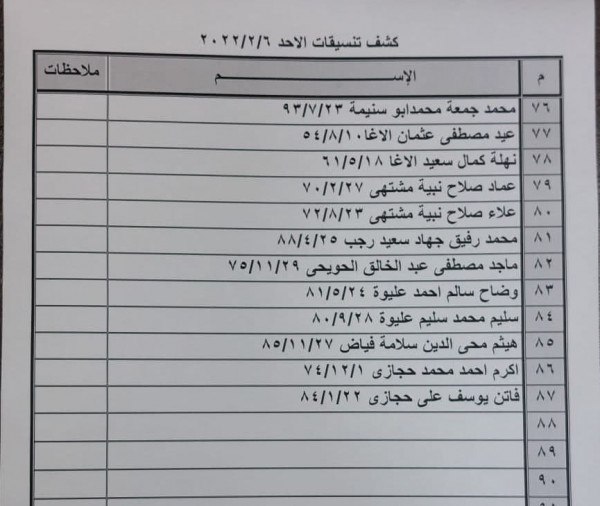 كشف تنسيقات الاحد ٢٠٢٢/٢/٦
م الإســـم ملاحظات
٧٦ محمد جمعة محمدابو سنيمة ٩٣/٧/٢٣
٧٧ عيد مصطفى عثمان الاغا ٥٤/٨/١٠
٧٨ نهلة كمال سعيد الاغا ٦١/٥/١٨
٧٩ عماد صلاح نبية مشتهى ٧٠/٢/٢٧
٨٠ علاء صلاح نبية مشتهى ٧٢/٨/٢٣
٨١ محمد رفيق جهاد سعيد رجب ٨٨/٤/٢٥
٨٢ ماجد مصطفى عبد الخالق الحويحى ٧٥/١١/٢٩
٨٣ وضاح سالم احمد عليوة ٨١/٥/٢٤
٨٤ سليم محمد سليم عليوة ٨٠/٩/٢٨
٨٥ هيثم محى الدين سلامة فياض ٨٥/١١/٢٧
٨٦ اكرم احمد محمد حجازى ٧٤/١٢/١
٨٧ فاتن يوسف على حجازى ٨٤/١/٢٢
٨٨
٨٩
٩٠